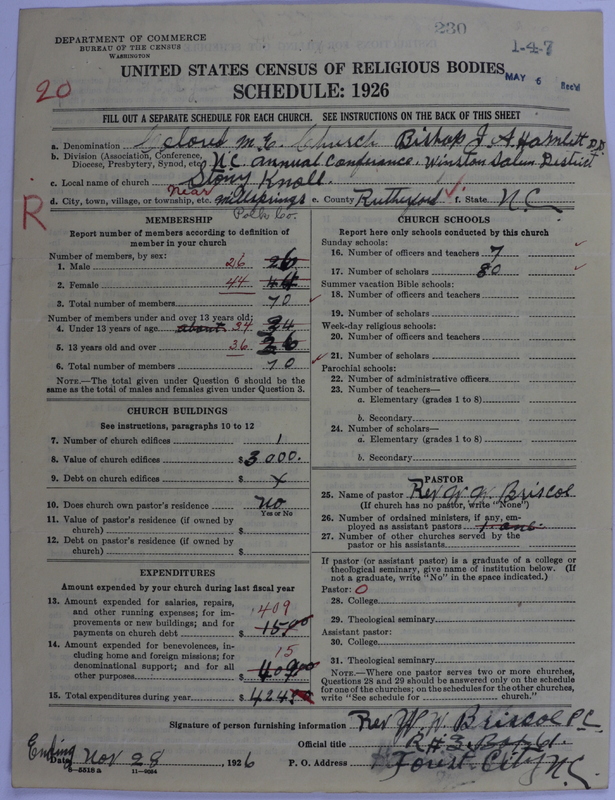 230
DEPARTMENT OF COMMERCE
BUREAU OF THE CENSUS
WASHINGTON
1-4-7
UNITED STATES CENSUS OF RELIGIOUS BODIES
MAY 6 Rec'd
20
SCHEDULE: 1926
FILL OUT A SEPARATE SCHEDULE FOR EACH CHURCH. SEE INSTRUCTIONS ON THE BACK OF THIS SHEET
a. Denomination Colored M. E. Church Bishop J A Hamlett D.D
b. Division (Association, Conference, Diocese, Presbytery, Synod, etc.) N.C. annual Conferance. Winston Salem District
c. Local name of church Stony Knoll.
d. City, town, village, or township, etc. near millsprings e. County Rutherford f. State N.C.
Polk Co.
R
MEMBERSHIP
Report number of members according to definition of member in your church
Number of members, by sex:
1. Male 26 26
2. Female 44 44
3. Total number of members 70
Number of members under and over 13 years old:
4. Under 13 years of age about 34 34
5. 13 years old and over 36 36
6. Total number of members 70
NOTE.—The total given under Question 6 should be the same as the total of males and females given under Question 3.
CHURCH BUILDINGS
See instructions, paragraphs 10 to 12
7. Number of church edifices 1
8. Value of church edifices $ 3000.
9. Debt on church edifices $ x
10. Does church own pastor's residence No
Yes or No
11. Value of pastor's residence (if owned by church) $
12. Debt on pastor's residence (if owned by church) $
EXPENDITURES
Amount expended by your church during last fiscal year
13. Amount expended for salaries, repairs, and other running expenses; for improvements or new buildings; and for payments on church debt $ 409 1500
14. Amount expended for benevolences, including home and foreign missions; for denominational support; and for all other purposes $ 15 40900
15. Total expenditures during year $ 424
CHURCH SCHOOLS
Report here only schools conducted by this church
Sunday schools:
16. Number of officers and teachers 7
17. Number of scholars 80
Summer vacation Bible schools:
18. Number of officers and teachers
19. Number of scholars
Week-day religious schools:
20. Number of officers and teachers
21. Number of scholars
Parochial schools:
22. Number of administrative officers
23. Number of teachers—
a. Elementary (grades 1 to 8)
b. Secondary
24. Number of scholars—
a. Elementary (grades 1 to 8)
b. Secondary
PASTOR
25. Name of pastor Rev W. W. Briscol
(If church has no pastor, write "None")
26. Number of ordained ministers, if any, employed as assistant pastors 1 one
27. Number of other churches served by the pastor or his assistants
If pastor (or assistant pastor) is a graduate of a college or theological seminary, give name of institution below. (If not a graduate, write "No" in the space indicated.)
Pastor: O
28. College
29. Theological seminary
Assistant pastor:
30. College
31. Theological seminary
NOTE.—Where one pastor serves two or more churches, Questions 28 and 29 should be answered only on the schedule for one of the churches; on the schedules for the other churches, write "See schedule for church."
Signature of person furnishing information Rev W. W. Briscol P.C.
Official title R#3. Box 61.
Ending
Date Nov 28, 1926 P. O. Address Forest City, N.C.
8—5518 a 11—9034
230